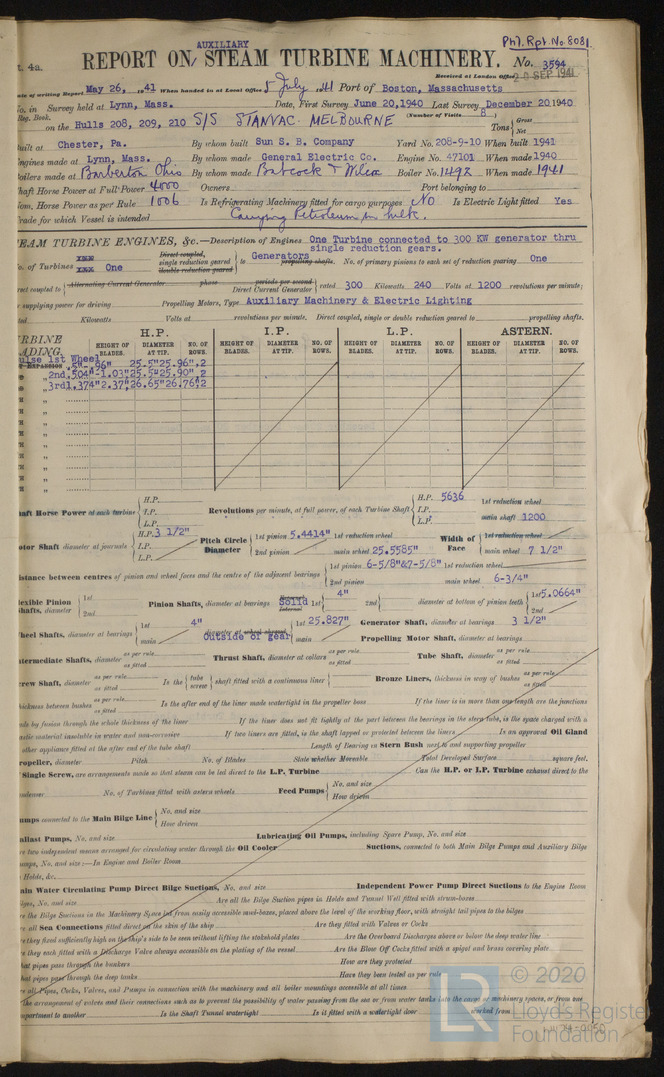 Phl. Rpt. No. 8081
AUXILIARY
4a. REPORT ON STEAM TURBINE MACHINERY. No. 3594
Received at London Office 20 SEP 1941
of writing Report May 26, 1941 When handed in at Local Office 5 July 1941 Port of Boston, Massachusetts
No. in Survey held at Lynn, Mass. Date, First Survey June 20, 1940 Last Survey December 20, 1940
Reg. Book. (Number of Visits 8)
on the Hulls 208, 209, 210 S/S STANVAC MELBOURNE Tons Gross Net
Built at Chester, Pa. By whom built Sun S. B. Company Yard No. 208-9-10 When built 1941
Engines made at Lynn, Mass. By whom made General Electric Co. Engine No. 47101 When made 1940
Boilers made at Barberton Ohio By whom made Babcock & Wilcox Boiler No. 1492 When made 1941
Shaft Horse Power at Full Power 4000 Owners Port belonging to
Nom. Horse Power as per Rule 1006 Is Refrigerating Machinery fitted for cargo purposes NO Is Electric Light fitted Yes
Trade for which Vessel is intended Carrying Petroleum in bulk.
STEAM TURBINE ENGINES, &c.—Description of Engines One Turbine connected to 300 KW generator thru
single reduction gears.
No. of Turbines One Direct coupled, single reduction geared double reduction geared to Generators propelling shafts. No. of primary pinions to each set of reduction gearing One
direct coupled to Alternating Current Generator phase periods per second Direct Current Generator rated 300 Kilowatts 240 Volts at 1200 revolutions per minute;
supplying power for driving Propelling Motors, Type Auxiliary Machinery & Electric Lighting
Kilowatts Volts at revolutions per minute. Direct coupled, single or double reduction geared to propelling shafts.
TURBINE BLADING. H.P. I.P. L.P. ASTERN.
HEIGHT OF BLADES. DIAMETER AT TIP. NO. OF ROWS. HEIGHT OF BLADES. DIAMETER AT TIP. NO. OF ROWS. HEIGHT OF BLADES. DIAMETER AT TIP. NO. OF ROWS. HEIGHT OF BLADES. DIAMETER AT TIP. NO. OF ROWS.
1st Wheel .5"-.96" 25.5"25.96" 2
2nd .504"-1.03" 25.5"25.90" 2
3rd 1.374"2.37" 26.65"26.76" 2
Shaft Horse Power at each turbine H.P. I.P. L.P. Revolutions per minute, at full power, of each Turbine Shaft H.P. 5636 I.P. L.P. 1st reduction wheel main shaft 1200
Rotor Shaft diameter at journals H.P. 3 1/2" I.P. L.P. Pitch Circle Diameter 1st pinion 5.4414" 2nd pinion 1st reduction wheel main wheel 25.5585" Width of Face 1st reduction wheel main wheel 7 1/2"
Distance between centres of pinion and wheel faces and the centre of the adjacent bearings 1st pinion 6-5/8"&7-5/8" 2nd pinion 1st reduction wheel main wheel 6-3/4"
Flexible Pinion Shafts, diameter 1st 2nd Pinion Shafts, diameter at bearings Solid 1st 4" 2nd diameter at bottom of pinion teeth 1st 5.0664" 2nd
Wheel Shafts, diameter at bearings 1st 4" main diameter at wheel shroud Outside of gear 1st 25.827" main Generator Shaft, diameter at bearings 3 1/2" Propelling Motor Shaft, diameter at bearings
Intermediate Shafts, diameter as per rule as fitted Thrust Shaft, diameter at collars as per rule as fitted Tube Shaft, diameter as per rule as fitted
Screw Shaft, diameter as per rule as fitted Is the tube screw shaft fitted with a continuous liner Bronze Liners, thickness in way of bushes as per rule as fitted
thickness between bushes as per rule as fitted Is the after end of the liner made watertight in the propeller boss If the liner is in more than one length are the junctions
made by fusion through the whole thickness of the liner If the liner does not fit tightly at the part between the bearings in the stern tube, is the space charged with a
plastic material insoluble in water and non-corrosive If two liners are fitted, is the shaft lapped or protected between the liners Is an approved Oil Gland
other appliance fitted at the after end of the tube shaft Length of Bearing in Stern Bush next to and supporting propeller
Propeller, diameter Pitch No. of Blades State whether Moveable Total Developed Surface square feet.
Single Screw, are arrangements made so that steam can be led direct to the L.P. Turbine Can the H.P. or I.P. Turbine exhaust direct to the
Condenser No. of Turbines fitted with astern wheels Feed Pumps No. and size How driven
Pumps connected to the Main Bilge Line No. and size How driven
Ballast Pumps, No. and size Lubricating Oil Pumps, including Spare Pump, No. and size
Are two independent means arranged for circulating water through the Oil Cooler Suctions, connected to both Main Bilge Pumps and Auxiliary Bilge
Pumps, No. and size:—In Engine and Boiler Room
Holds, &c.
Main Water Circulating Pump Direct Bilge Suctions, No. and size Independent Power Pump Direct Suctions to the Engine Room
Bilges, No. and size Are all the Bilge Suction pipes in Holds and Tunnel Well fitted with strum-boxes
Are the Bilge Suctions in the Machinery Space led from easily accessible mud-boxes, placed above the level of the working floor, with straight tail pipes to the bilges
Are all Sea Connections fitted direct on the skin of the ship Are they fitted with Valves or Cocks
Are they fixed sufficiently high on the ship's side to be seen without lifting the stokehold plates Are the Overboard Discharges above or below the deep water line
Are they each fitted with a Discharge Valve always accessible on the plating of the vessel Are the Blow Off Cocks fitted with a spigot and brass covering plate
What pipes pass through the bunkers How are they protected
What pipes pass through the deep tanks Have they been tested as per rule
Are all Pipes, Cocks, Valves, and Pumps in connection with the machinery and all boiler mountings accessible at all times
Is the arrangement of valves and their connections such as to prevent the possibility of water passing from the sea or from water tanks into the cargo or machinery spaces, or from one
compartment to another Is the Shaft Tunnel watertight Is it fitted with a watertight door worked from
© 2020
LR Lloyd's Register
Foundation